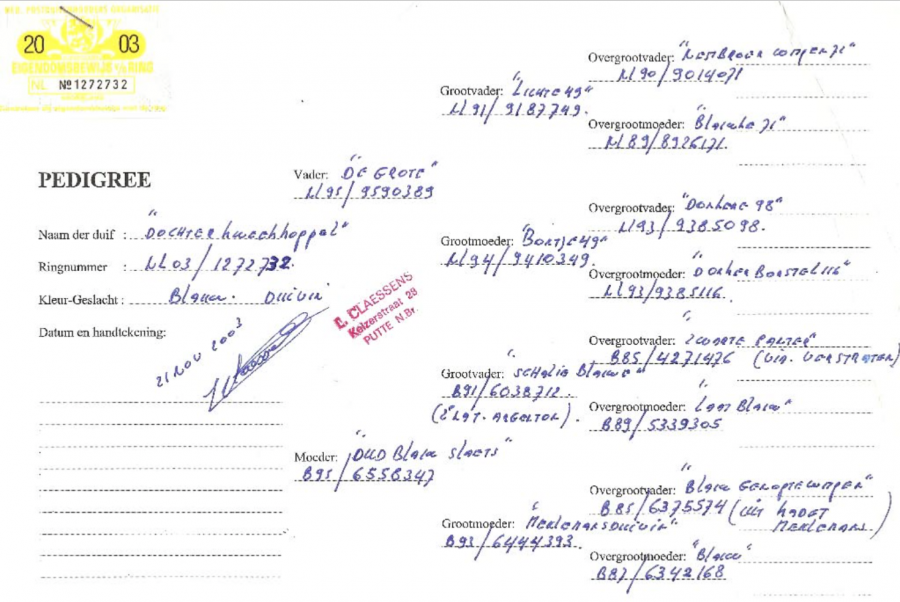 NED. POSTDUIVENHOUDERS ORGANISATIE
20 03
EIGENDOMSBEWIJS v/d RING
NL Nº1272732
PEDIGREE
Naam der duif : "DOCHTER Kweekkoppel"
Ringnummer : NL03/1272732.
Kleur-Geslacht : Blauw. DUIVIN
Datum en handtekening:
21 NOV 2003
L. CLAESSENS
Keizerstraat 28
PUTTE N.Br.
Vader: "DE GROTE"
NL95/9590389
Moeder: "OUD Blauw SLAETS"
B95/6558347
Grootvader: "LICHTE 49"
NL91/9187749.
Grootmoeder: "BONTJE 49"
NL94/9410349.
Grootvader: "SCHALIE BLAUWE"
B91/6038712.
Grootmoeder: "MERCKMANSDUIVIN"
B93/6444393.
Overgrootvader:
NL90/9014071
Overgrootmoeder: "Blauwe 71"
NL89/8926171.
Overgrootvader: "DONKERE 98"
NL93/9385098.
Overgrootmoeder: "DONKER BORSTEL 116"
NL93/9385116.
Overgrootvader: "ZWARTE
B85/4271476 (VIA. VERSTRATEN)
Overgrootmoeder: "LAAT Blauw"
B89/5339305
Overgrootvader: "Blauw
B85/6375574 (UIT KADET
Overgrootmoeder: "Blauw"
B87/6342168